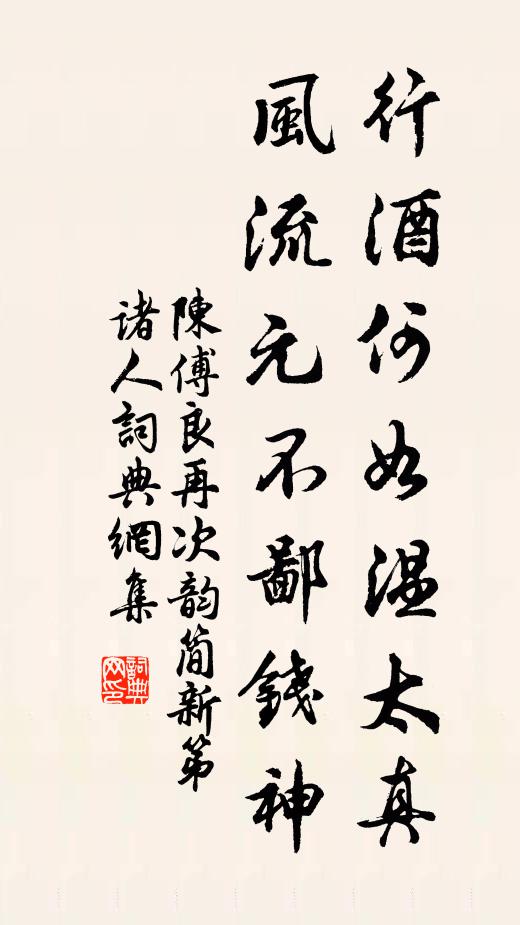 行酒何如温太真
風流元不鄙錢神
陳傅良再次韵簡新第
诸人詞典網集
詞典网印